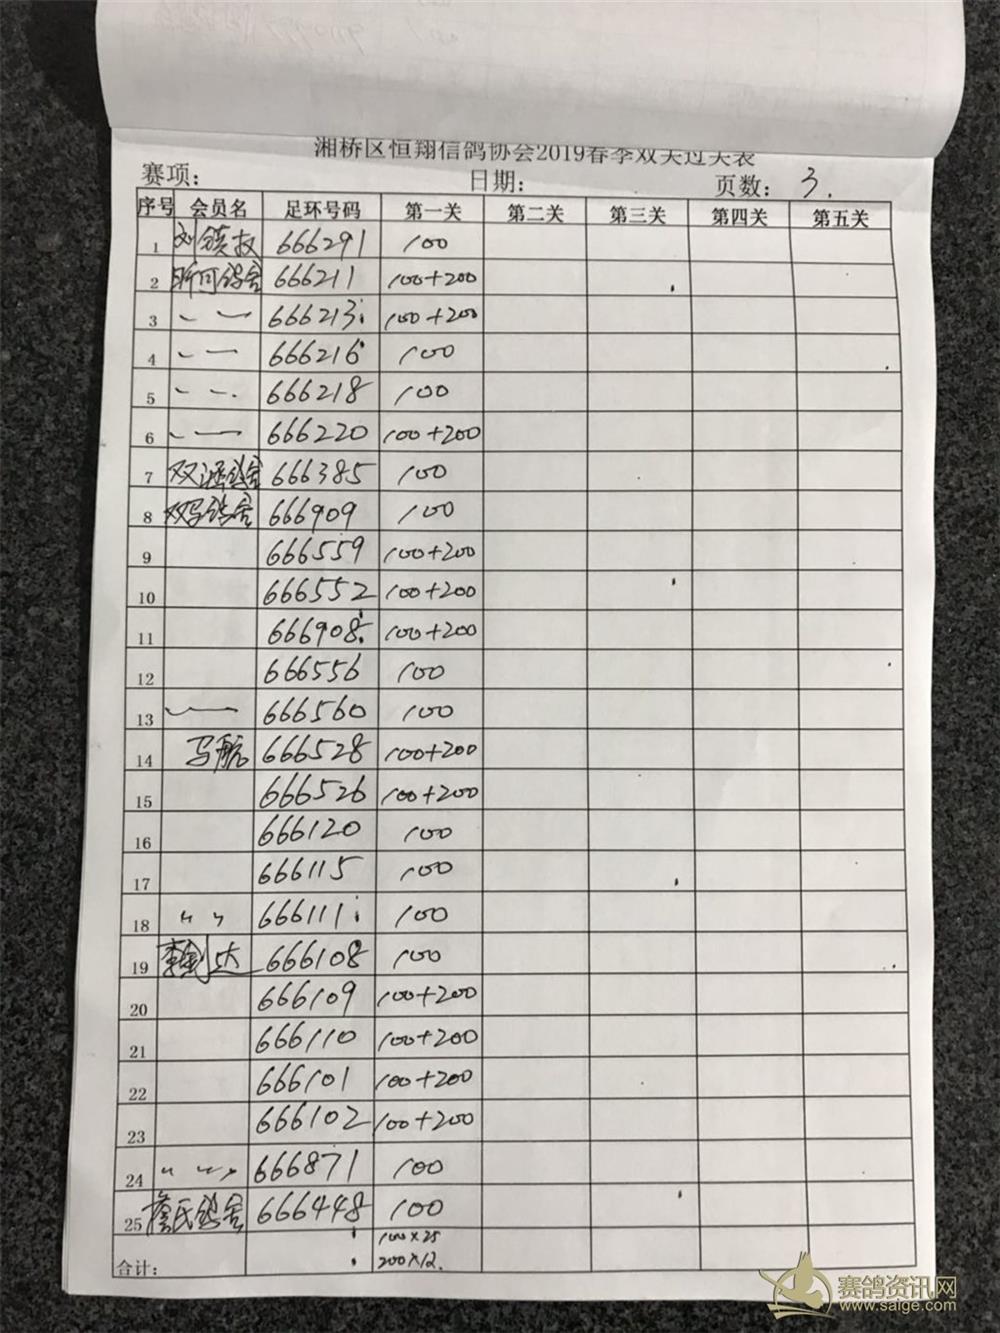 湘桥区恒翔信鸽协会2019春季双关过关表
赛项: 日期: 页数: 3.
序号 会员名 足环号码 第一关 第二关 第三关 第四关 第五关
1 刘 666291 100
2 昕可鸽舍 666211 100+200
3 〃 666213 100+200
4 〃 666216 100
5 〃 666218 100
6 〃 666220 100+200
7 双涵鸽舍 666385 100
8 双马鸽舍 666909 100
9 666559 100+200
10 666552 100+200
11 666908 100+200
12 666556 100
13 〃 666560 100
14 马航 666528 100+200
15 666526 100+200
16 666120 100
17 666115 100
18 〃 666111 100
19 李剑达 666108 100
20 666109 100+200
21 666110 100+200
22 666101 100+200
23 666102 100+200
24 〃 666871 100
25 詹氏鸽舍 666448 100
合计: 100×25
200×12.
赛鸽资讯网
www.saige.com